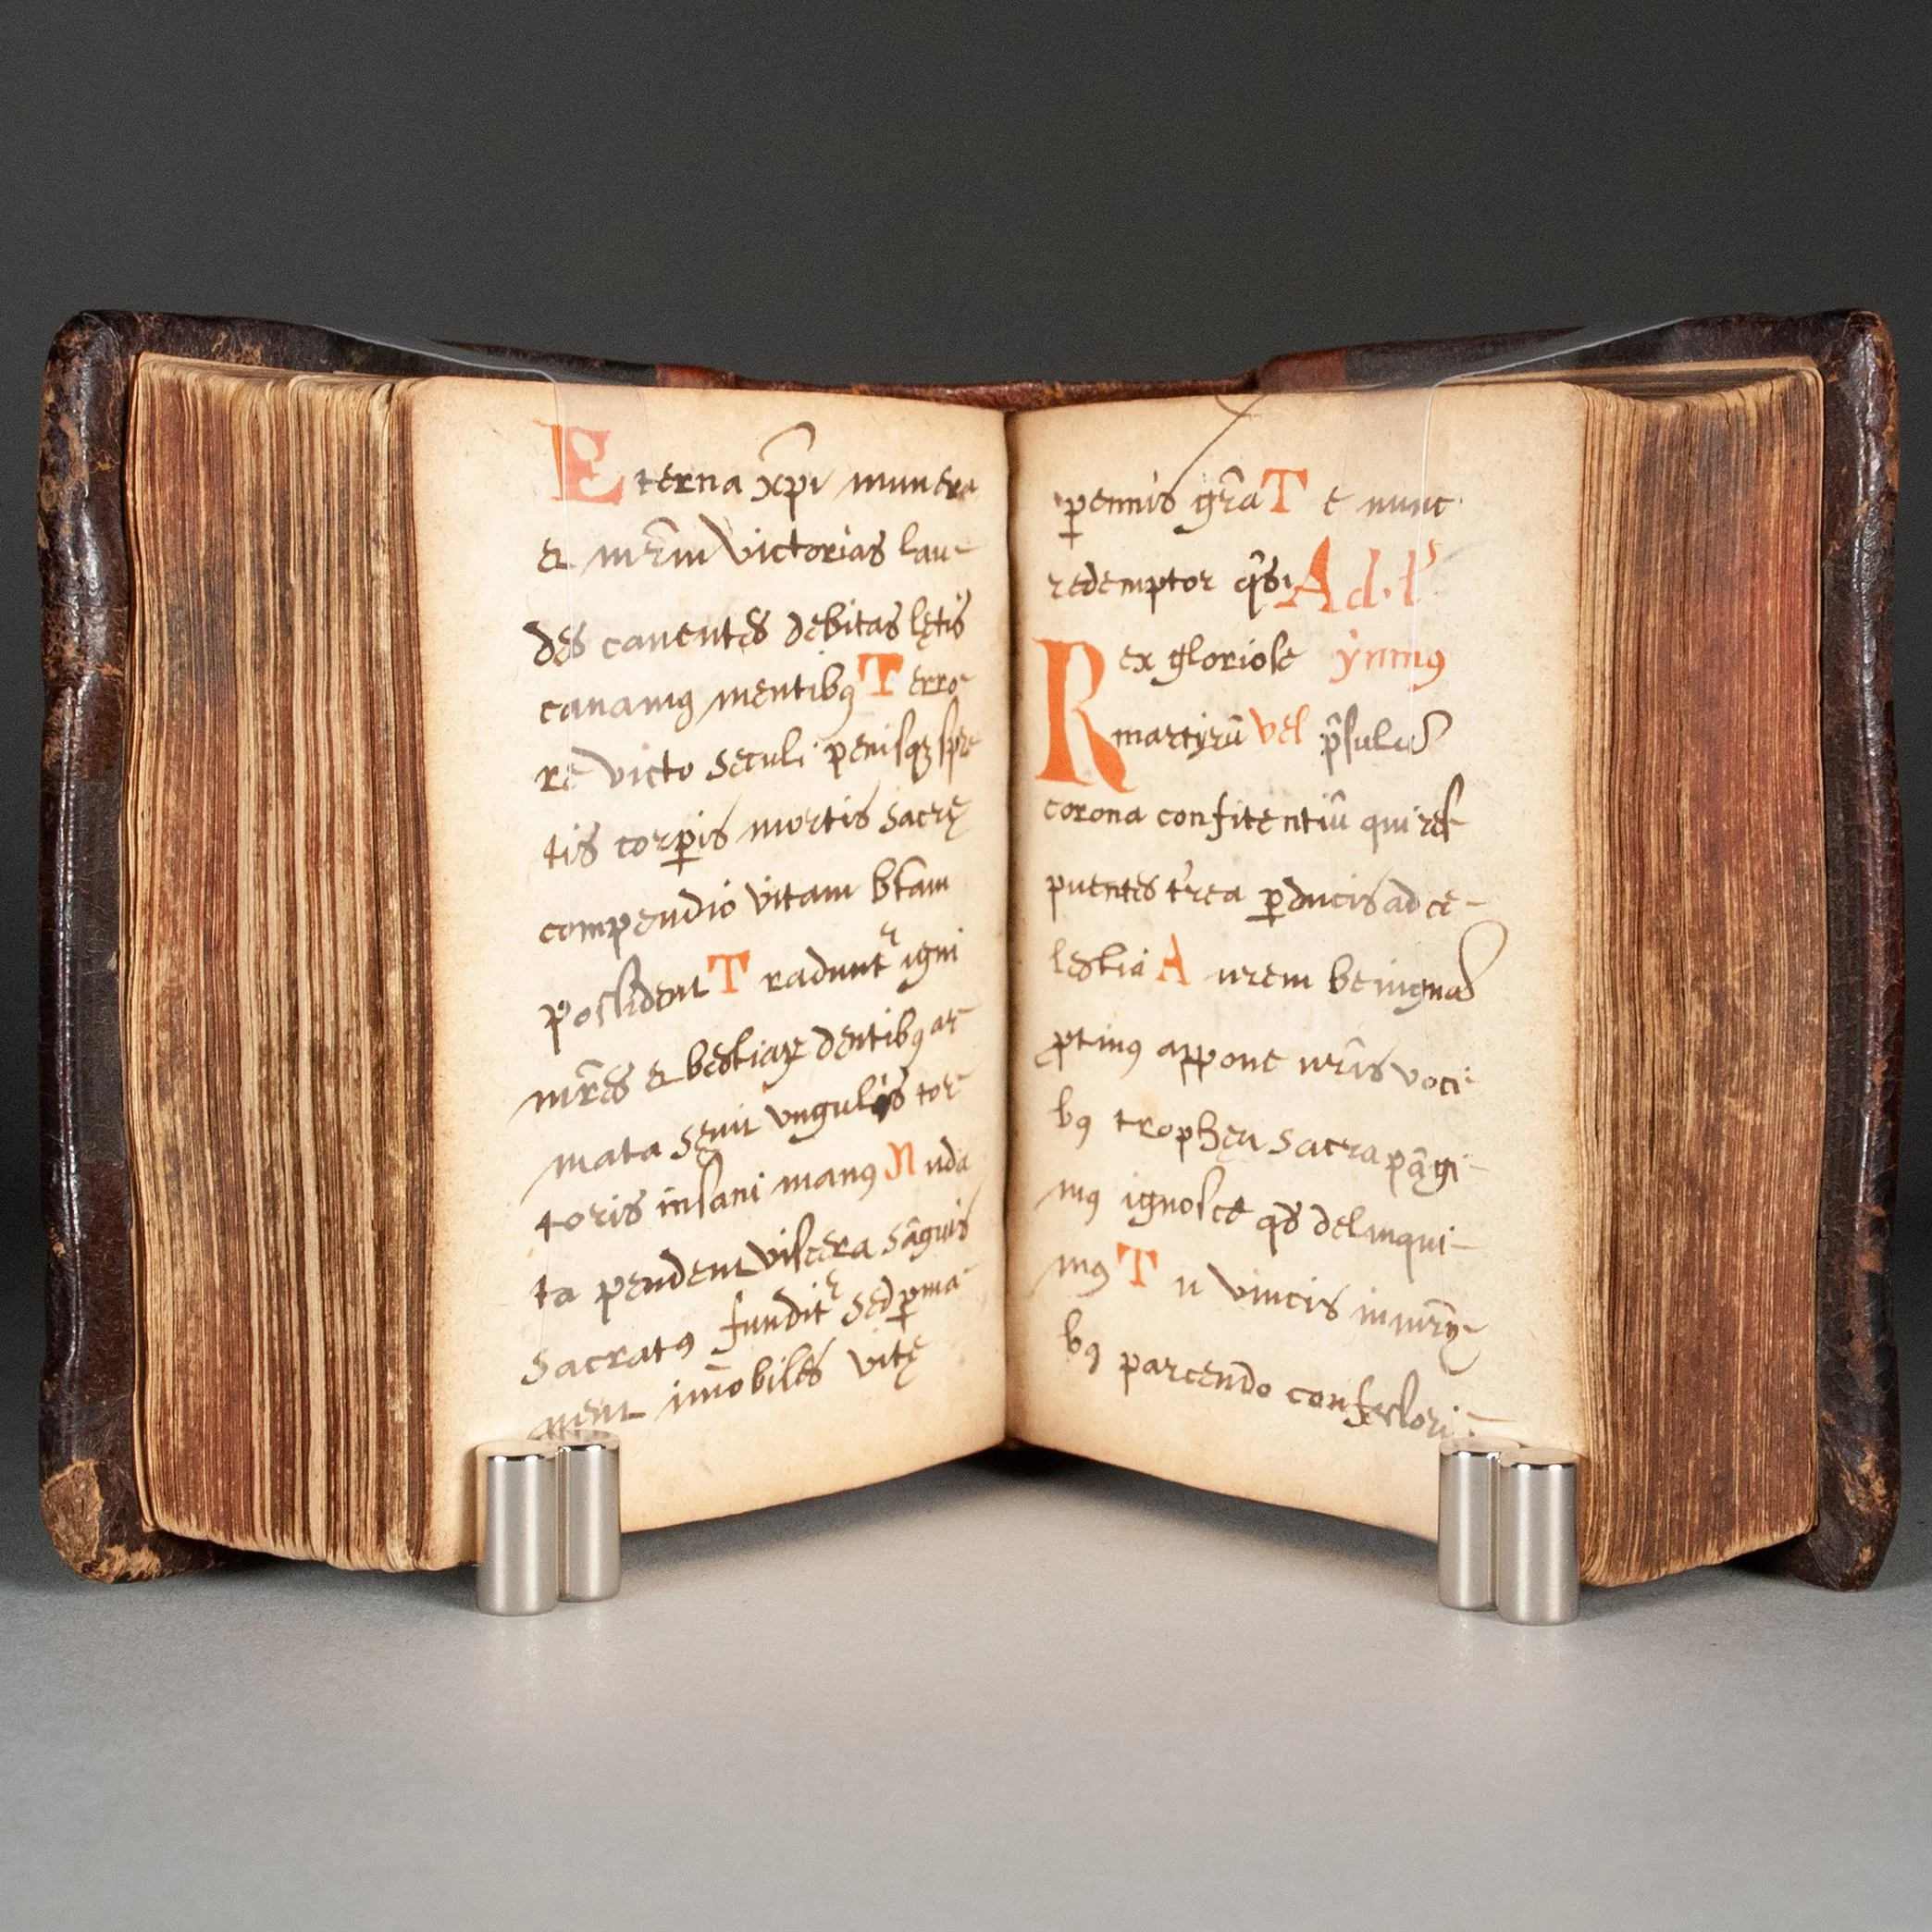 Eterna xp̄i munera
& mr̄m victorias lau-
des canentes debitas lętis
canamꝰ mentibꝰ Terro-
re victo seculi penisqꝫ spre
tis corꝑis mortis sacrę
compendio vitam bt̄am
possident Tradunt᷑ igni
mr̄es & bestiaꝝ dentibꝰ ar-
mata sęuit vngulis tor-
toris insani manꝰ Nuda
ta pendent viscera sāguis
sacratꝰ fundit᷑ sed ꝑma-
nent im̄obiles vitę
ꝑennis gr̄a Te nunc
redemptor qs̄ Ad. l
Rex gloriose ymnꝰ
martyrū vel p̄sulū
corona confitentiū qui res-
puentes t'rea ꝑducis ad ce-
lestia Aurem benignā
ꝓtinꝰ appone nr̄is voci-
bꝰ trophęa sacra pāgi-
mꝰ ignosce qd̄ delinqui-
mꝰ Tu vincis in mr̄i-
bꝰ parcendo confessori-